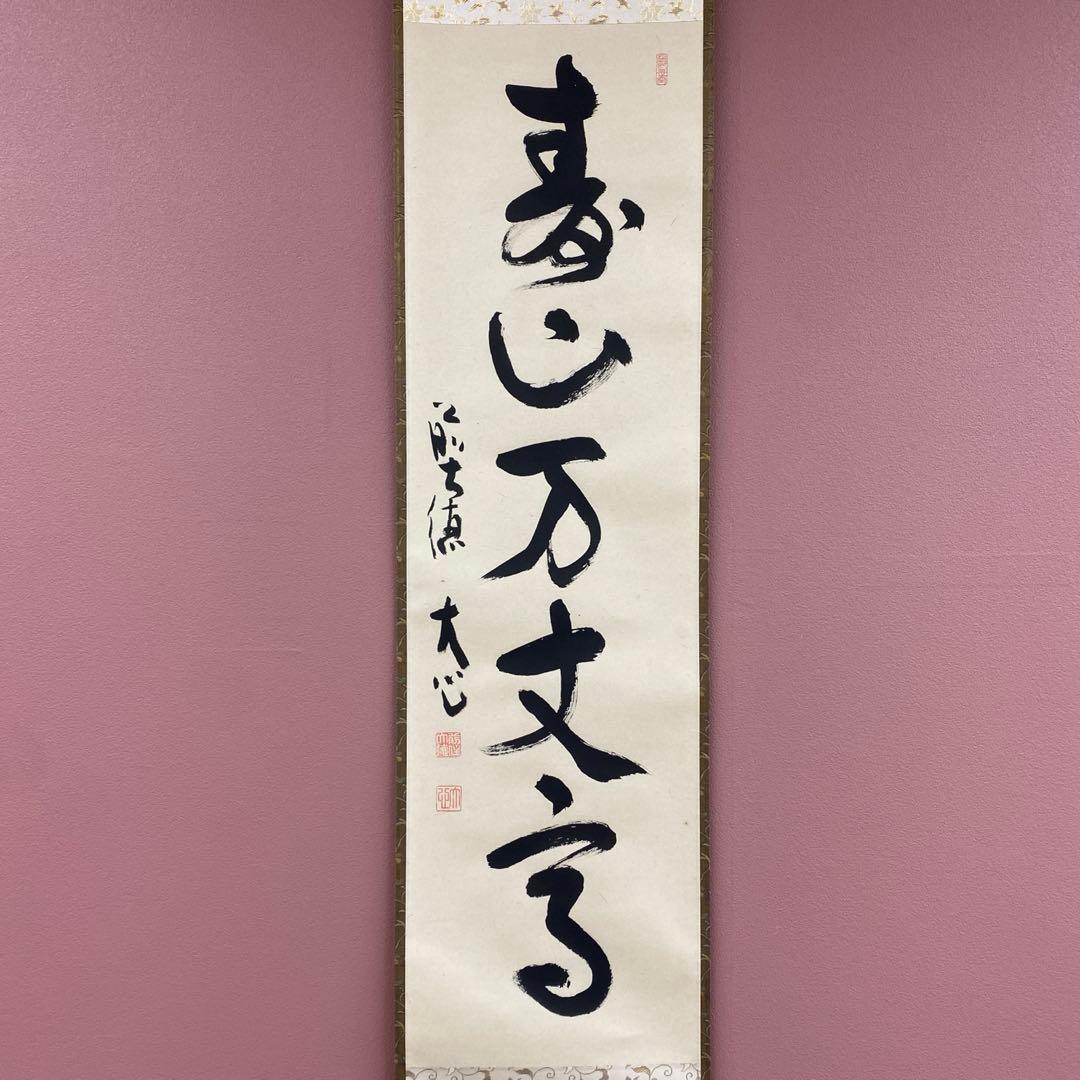 壽山万丈高
前大徳 大心